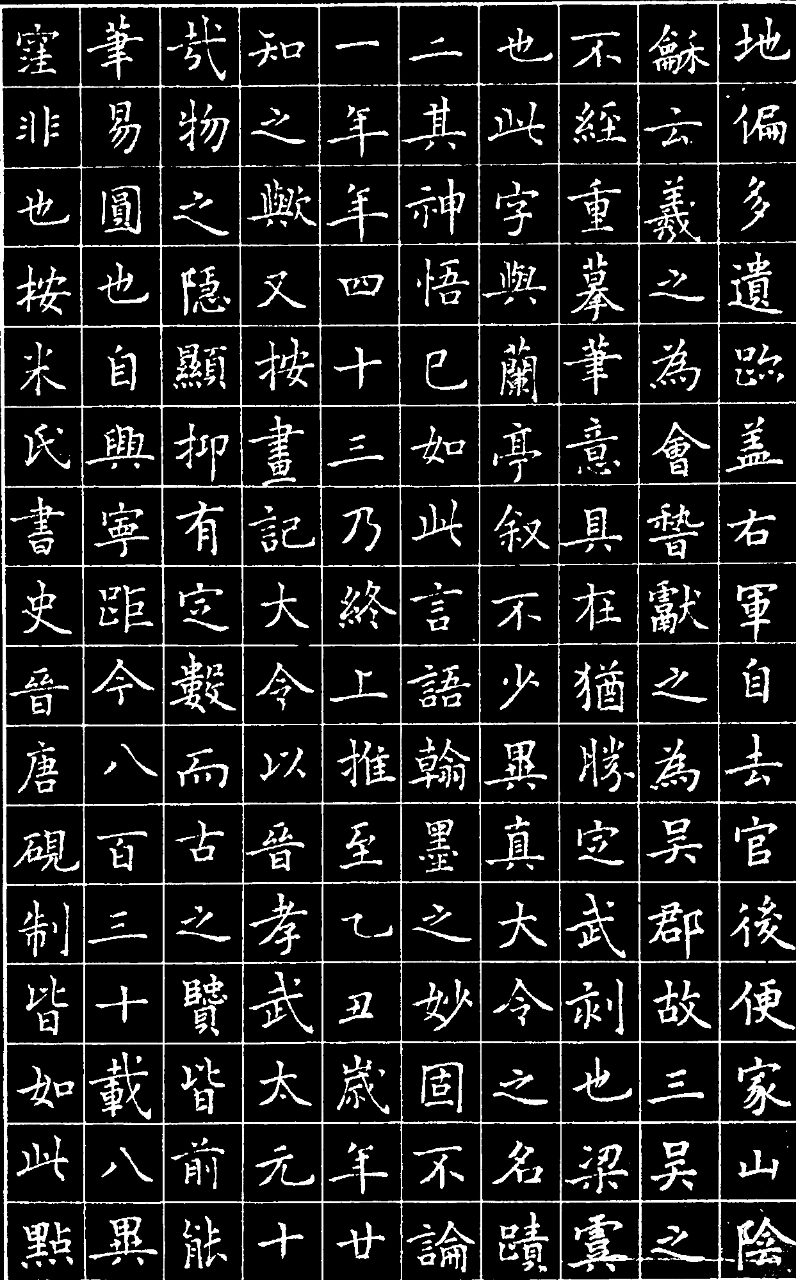 地偏多遺跡盖右軍自去官後便家山陰
龢云羲之為會稽獻之為吴郡故三吴之
不經重摹筆意具在猶勝定武刻也梁虞
也此字與蘭亭叙不少異真大令之名蹟
二其神悟已如此言語翰墨之妙固不論
一年年四十三乃終上推至乙丑歲年廿
知之歟又按畫記大令以晉孝武太元十
哉物之隱顯抑有定數而古之賢皆前能
筆易圓也自興寧距今八百三十載八異
窪非也按米氏書史晉唐硯制皆如此點